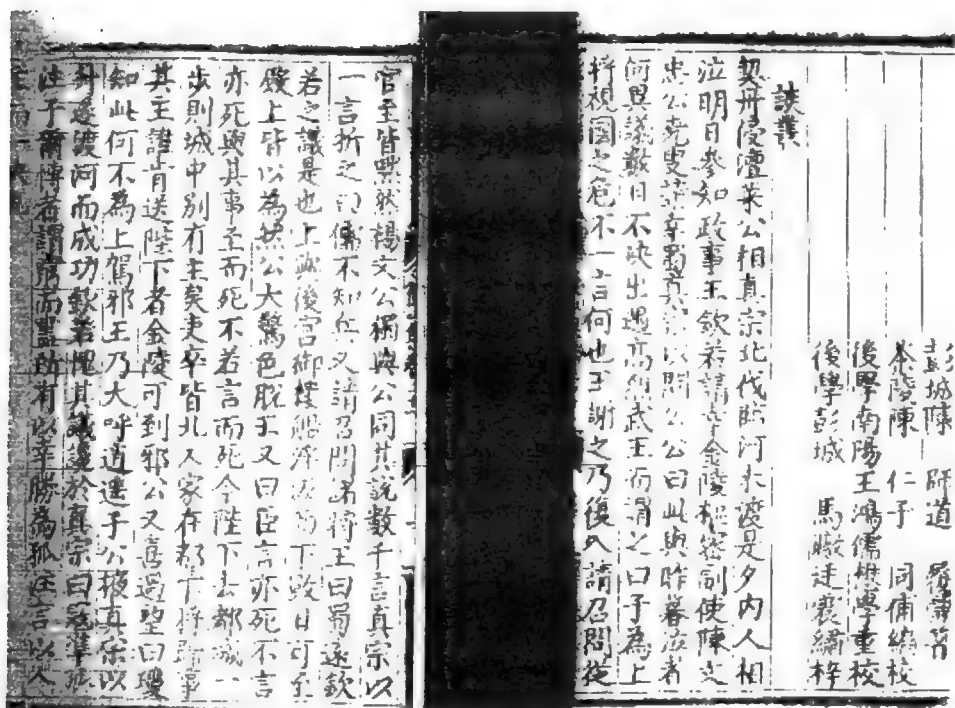 彭城陳 師道 履常著
茶陵陳 仁子 同俌編校
後學南陽王鴻儒懋學重校
後學彭城 馬暾廷震繡梓
談叢
契丹侵澶萊公相真宗北伐臨河未渡是夕內人相
泣明日參知政事王欽若請幸金陵樞密副使陳文
忠公堯叟請幸蜀真宗以問公公曰此與昨暮泣者
何異議數日不決出遇高烈武王而謂之曰子為上
將視國之危不一言何也王謝之乃復入請召問從
官至皆默然楊文公獨與公同其說數千言真宗以
一言折之曰儒不知兵又請召問諸將王曰蜀遠欽
若之議是也上與後宮御樓船浮汴而下數日可至
殿上皆以為然公大驚色脫王又曰臣言亦死不言
亦死與其事至而死不若言而死今陛下去都城一
步則城中別有主矣吏卒皆北人家在都下將歸事
其主誰肯送陛下者金陵可到邪公又喜過望曰瓊
知此何不為上駕邪王乃大呼逍遙子公掖真宗以
升遂渡河而成功欽若愧其議讒於真宗曰寇準孤
注子爾博者謂窮而盡所有以幸勝為孤注言以人